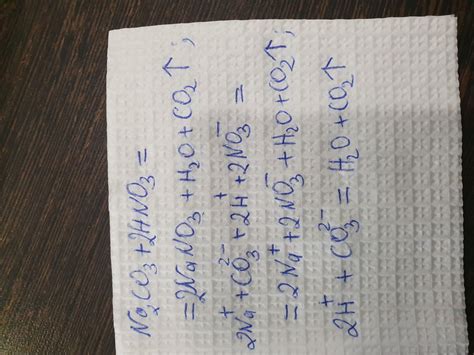 Na₂CO₃+2HNO₃=
=2NaNO₃+H₂O+CO₂↑;
2Na⁺+CO₃²⁻+2H⁺+2NO₃⁻=
=2Na⁺+2NO₃⁻+H₂O+CO₂↑;
2H⁺+CO₃²⁻=H₂O+CO₂↑